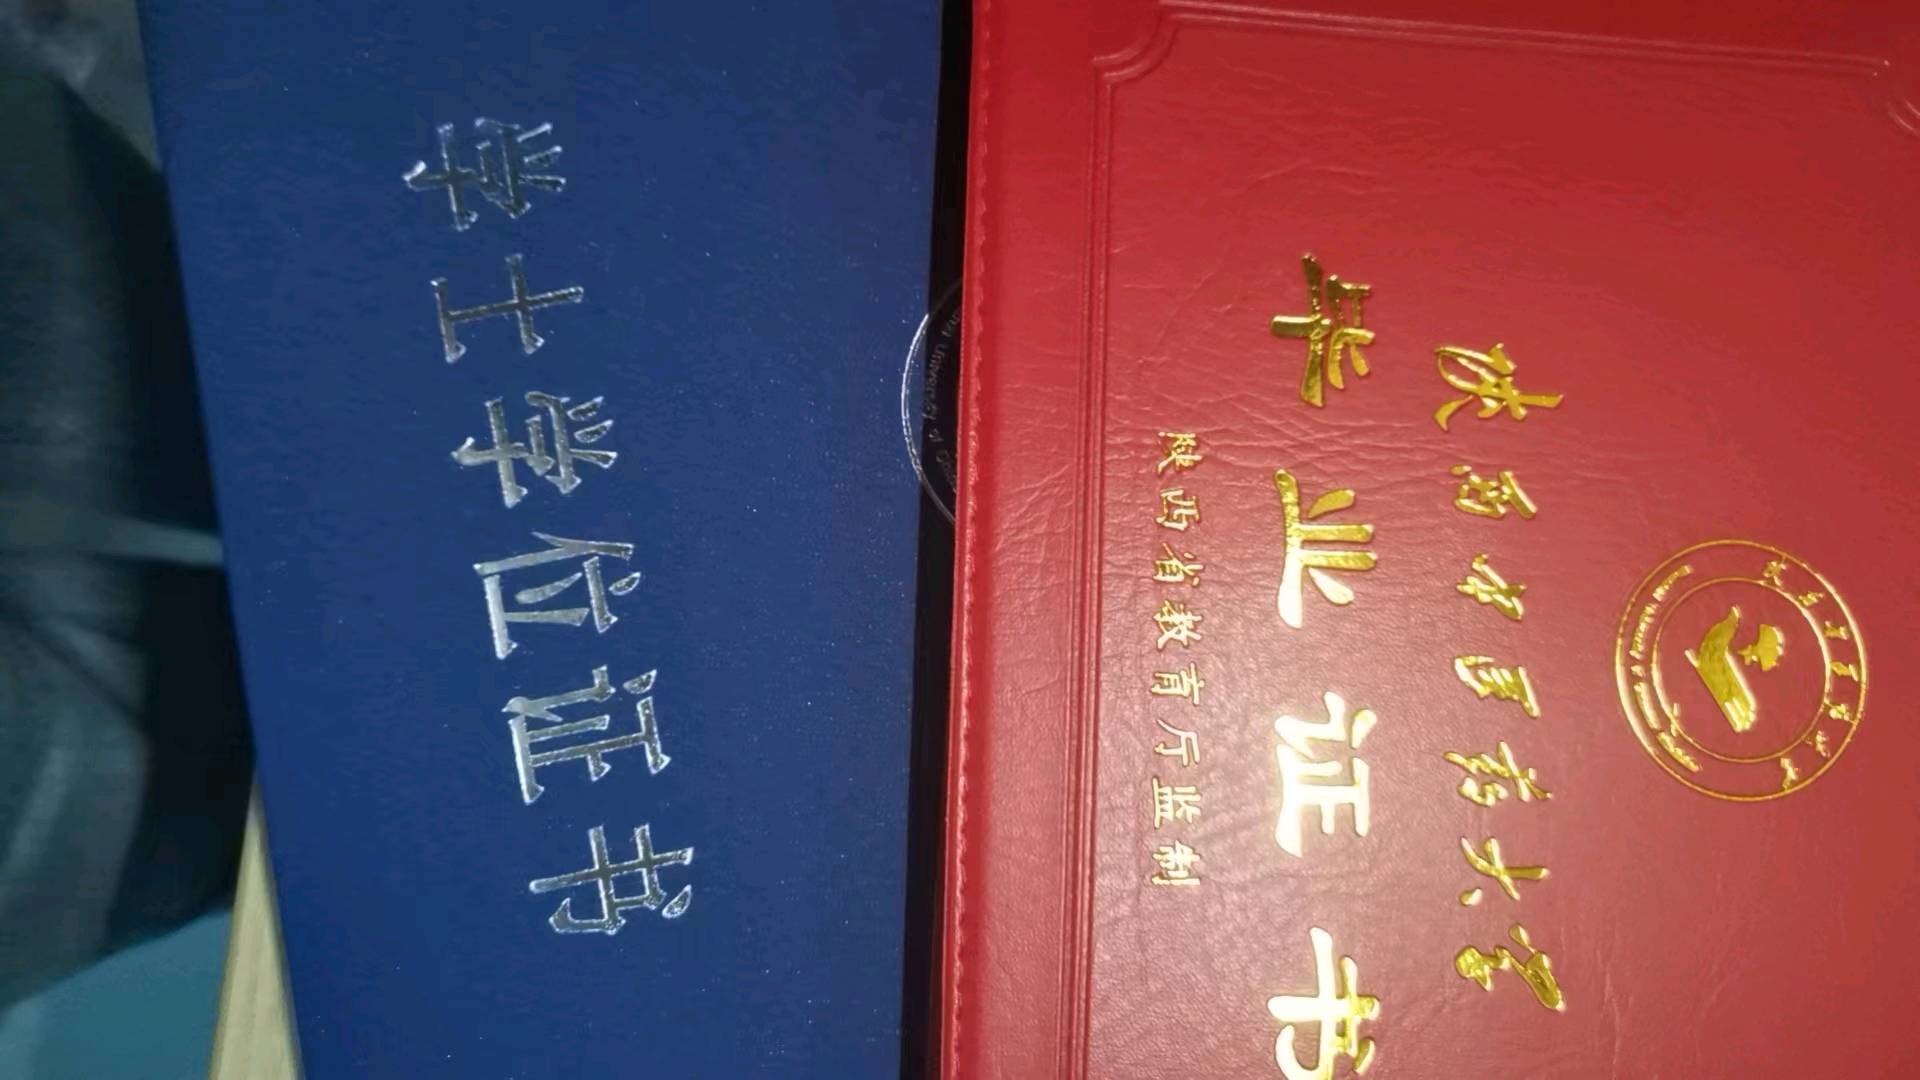 陕西中医药大学
毕业证书
陕西省教育厅监制
University of
学士学位证书